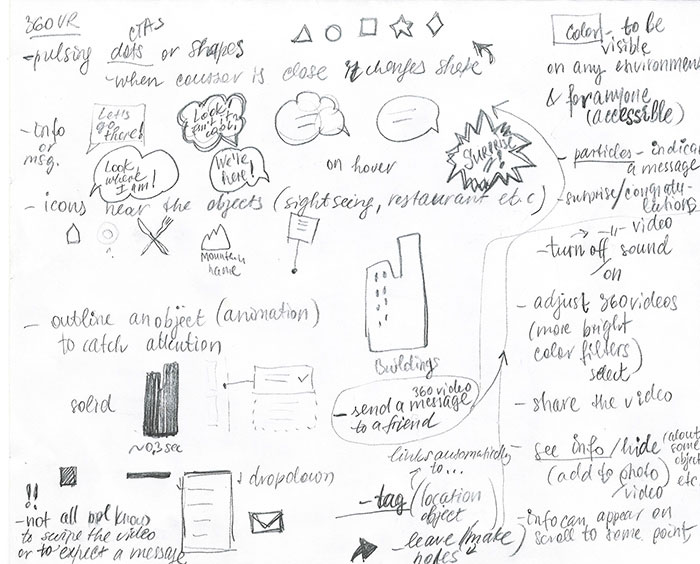 360VR
CTAS
-pulsing dots or shapes
-when coursor is close it changes shape
-Info
or
msg.
Let's
go
there!
Look!
isn't it
cool!
Look
where
I am!
We're
here!
on hover
Surprise!
-icons near the objects (sightseing, restaurant et.c)
Mountain
name
- outline an object (animation)
to catch attention
solid
~0,3 sec
Buildings
360 video
-send a message
to a friend
links automatically
to...
-tag (location
object)
-leave/make
notes
dropdown
!!
-not all ppl know
to swipe the video
or to expect a message
color - to be
visible
on any environment
& for anyone
(accessible)
-particles - indicat
a message
-surprise/congratu-
lations
-"- video
-turn off sound
/on
-adjust 360videos
(more bright
color filters)
select
-share the video
-see info/hide (about
some
object
etc.
(add to photo
/video)
-info can appear on
scroll to some point